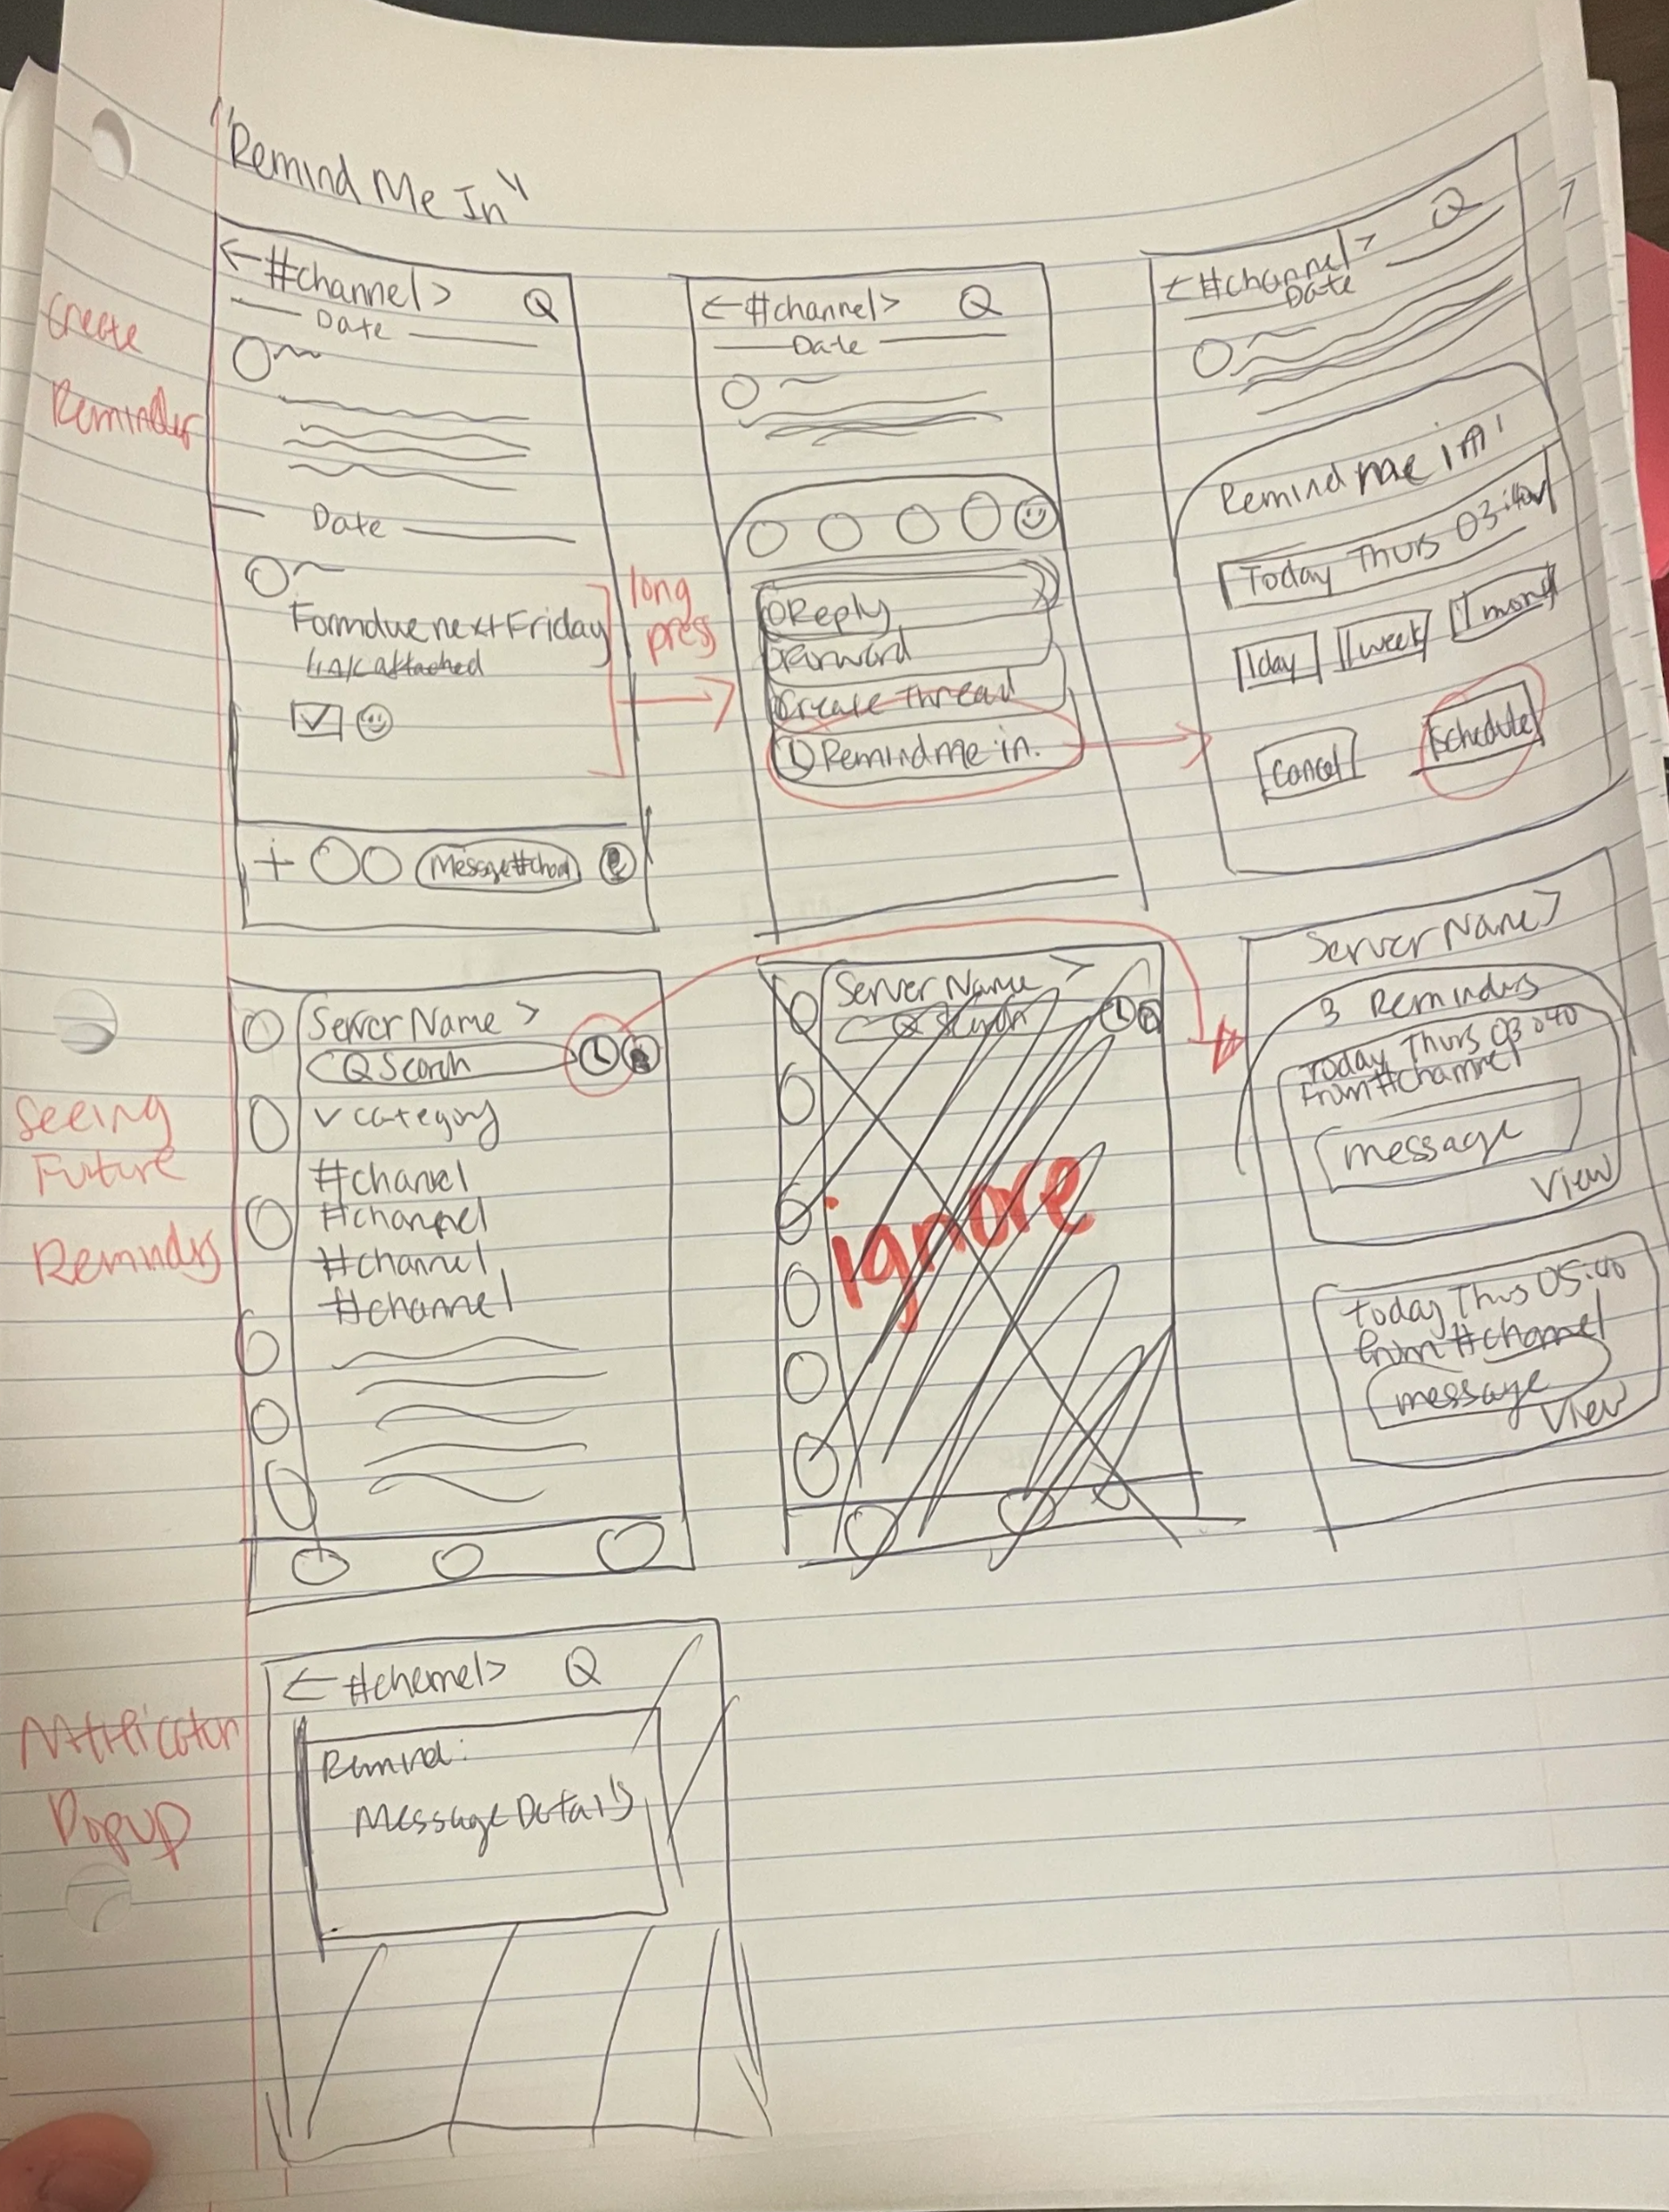 "Remind Me In"
Create
Reminder
← #channel >
Date
Date
Form due next Friday
link attached
+ Message #chan
long
press
← #channel >
Date
Reply
Forward
Create Thread
Remind me in.
← #channel >
Date
Remind me in
Today Thurs 03:40
1 day 1 week 1 mon
Cancel Schedule
Seeing
Future
Remindrs
Server Name >
Search
v category
#channel
#channel
#channel
#channel
Server Name >
Search
ignore
Server Name >
3 Remindrs
Today Thurs 03:40
From #channel
message
View
Today Thurs 05:40
from #channel
message
View
Popup
← #channel >
Remind:
Message Details